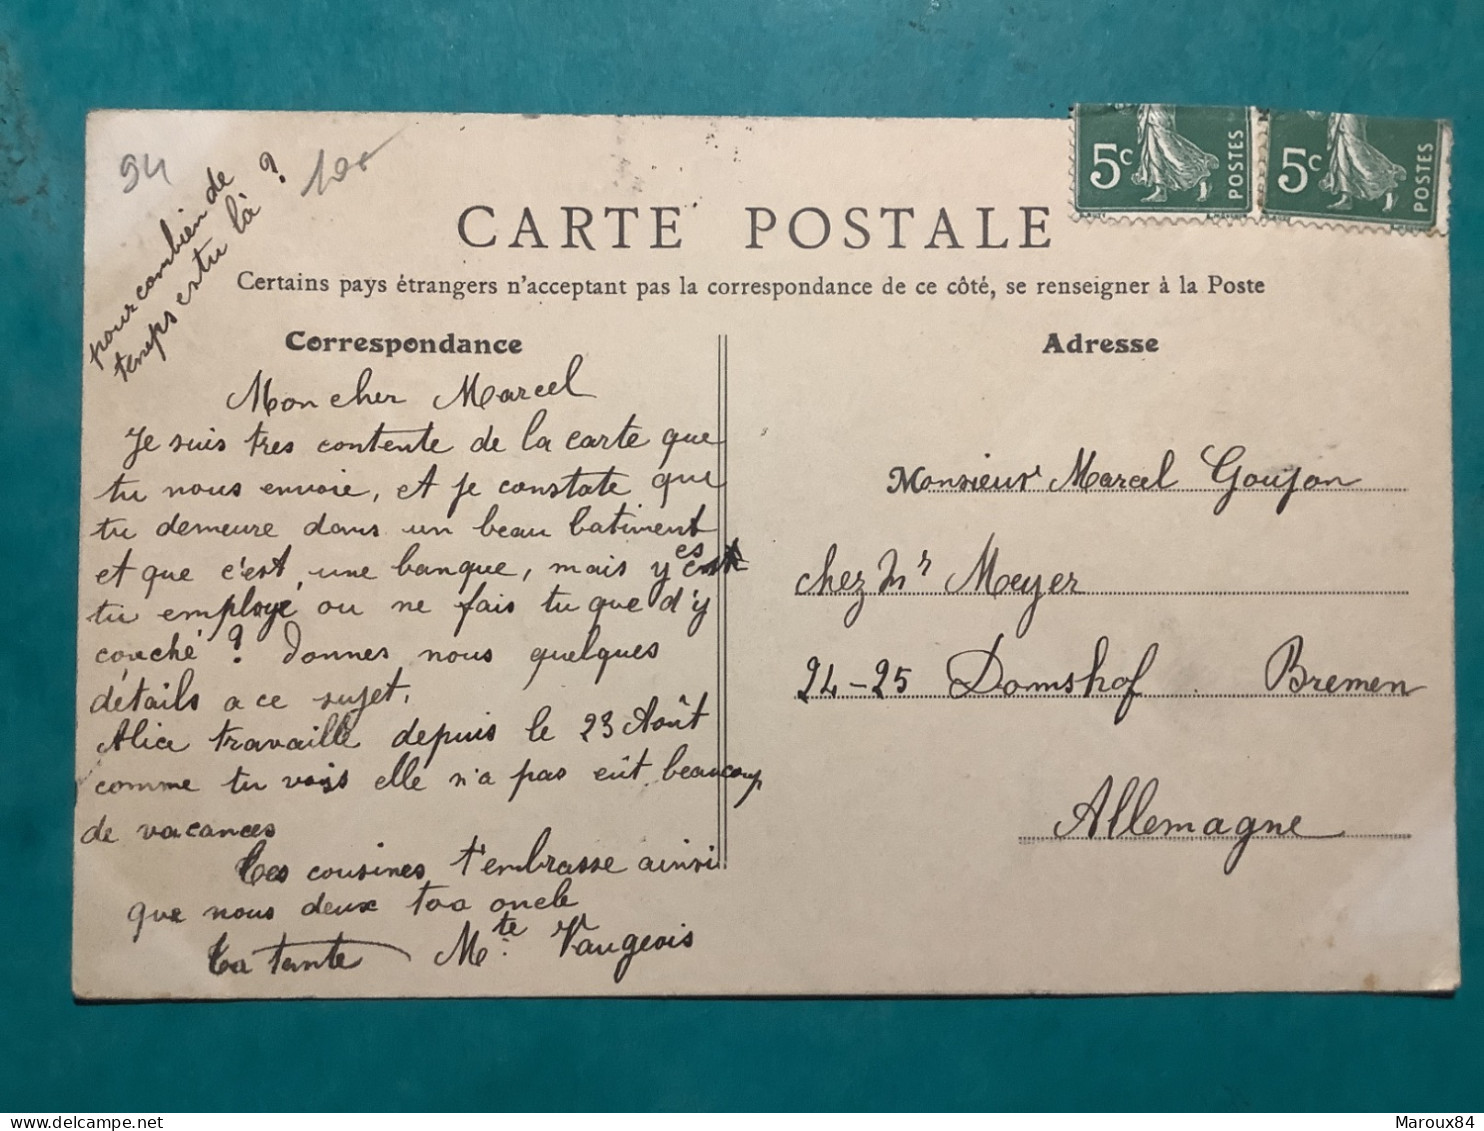 94
100
pour combien de
temps es tu là ?
5c POSTES
5c POSTES
CARTE POSTALE
Certains pays étrangers n'acceptent pas la correspondance de ce côté, se renseigner à la Poste
Correspondance
Mon cher Marcel
Je suis tres contente de la carte que
tu nous envoie, et je constate que
tu demeure dans un beau batiment
et que c'est une banque, mais y es
tu employé ou ne fais tu que d'y
couché ? donnes nous quelques
détails a ce sujet.
Alice travaille depuis le 23 Août
comme tu vois elle n'a pas eût beaucoup
de vacances
Tes cousines t'embrasse ainsi
que nous deux ton oncle
Ta tante Mte Vaugeois
Adresse
Monsieur Marcel Goujon
chez Mr Meyer
24-25 Domshof Bremen
Allemagne
Maroux84